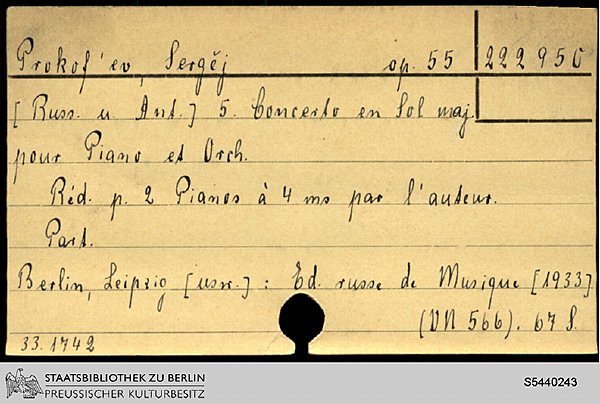 Prokof'ev, Sergěj op. 55 222950
[Russ. u. Ant.] 5. Concerto en Sol maj.
pour Piano et Orch.
Réd. p. 2 Pianos à 4 ms par l'auteur.
Part.
Berlin, Leipzig [usw.]: Ed. russe de Musique [1933]
(VN 566). 67 S.
33.1742
STAATSBIBLIOTHEK ZU BERLIN
PREUSSISCHER KULTURBESITZ
S5440243